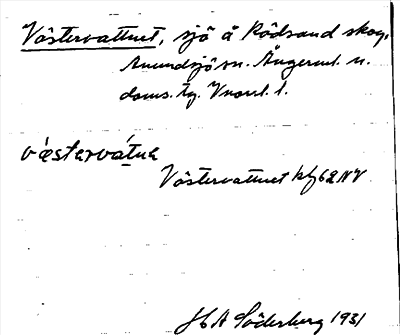 Västervattnet, sjö å Rödsand skog.
Anundsjö sn. Ångerml. n.
doms. tg. Vnorrl. l.
væstərvátnə
Västervattnet kbf 62 NV
H A Söderberg 1931